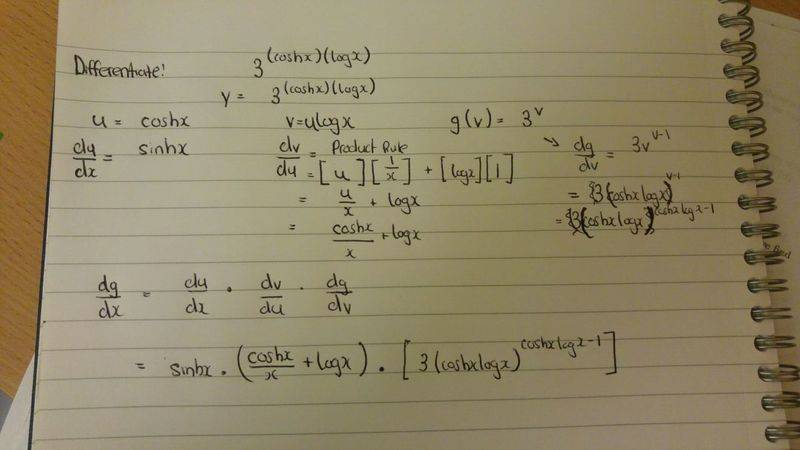 Differentiate! 3^(coshx)(logx)
y = 3^(coshx)(logx)
u = coshx v=ulogx g(v) = 3^v
du/dx = sinhx dv/du = Product Rule → dg/dv = 3v^v-1
= [u][1/x] + [logx][1]
= u/x + logx = 3(coshxlogx)^v-1
= coshx/x + logx = 3(coshxlogx)^coshxlogx-1
dg/dx = du/dx . dv/du . dg/dv
= sinhx . (coshx/x + logx) . [3(coshxlogx)^coshxlogx-1]